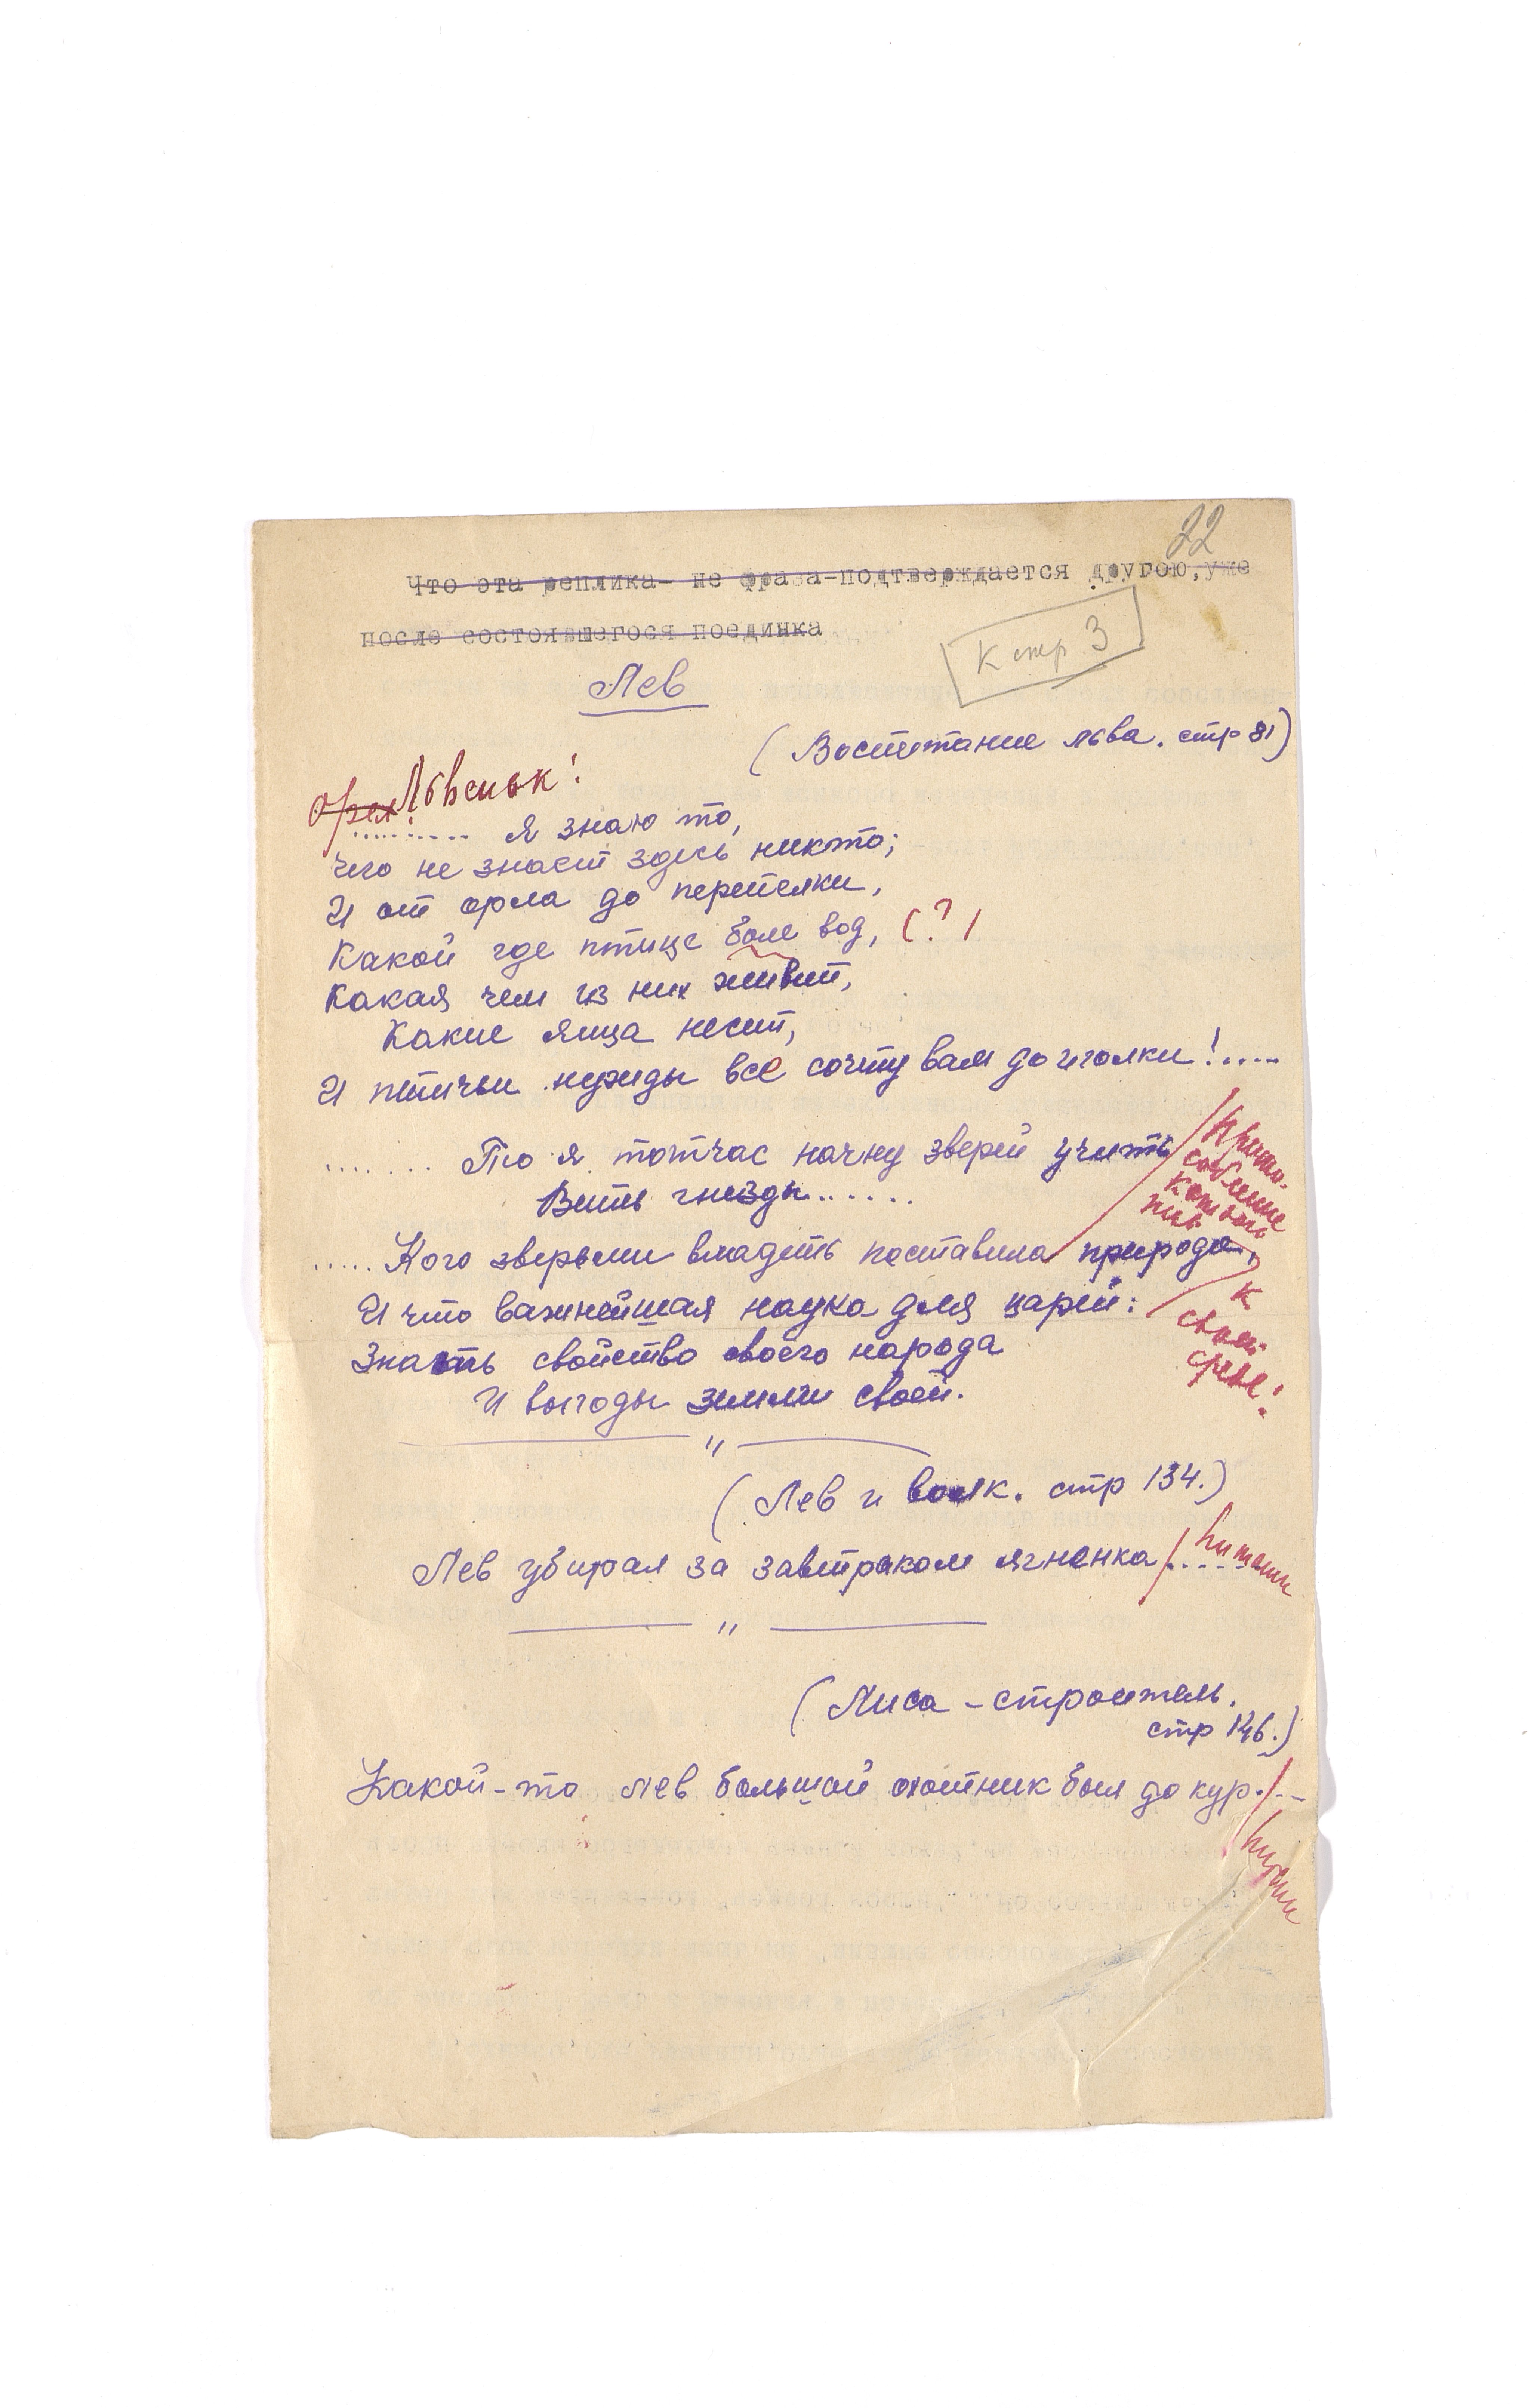 22
Что эта реплика- не фраза-подтверждается другою,уже
после состоявшегося поединка
К стр. 3
Лев
(Воспитание льва. стр 81)
Орел Львенок!
.......... Я знаю то,
Чего не знает здесь никто;
И от орла до перепелки,
Какой где птице боле вод, (?)
Какая чем из них живет,
Какие яица несет,
И птичьи нужды все сочту вам до иголки!.....
....... То я тотчас начну зверей учить
Вить гнезды......
приспо-
собление
к
своей
среде!
.....Кого зверьми владеть поставила природа,
И что важнейшая наука для царей:
Знать свойство своего народа
И выгоды земли своей.
"
(Лев и волк. стр 134.)
Лев убирал за завтраком ягненка.... питание
"
(Лиса-строитель.
стр 146.)
Какой-то Лев большой охотник был до кур...
питание